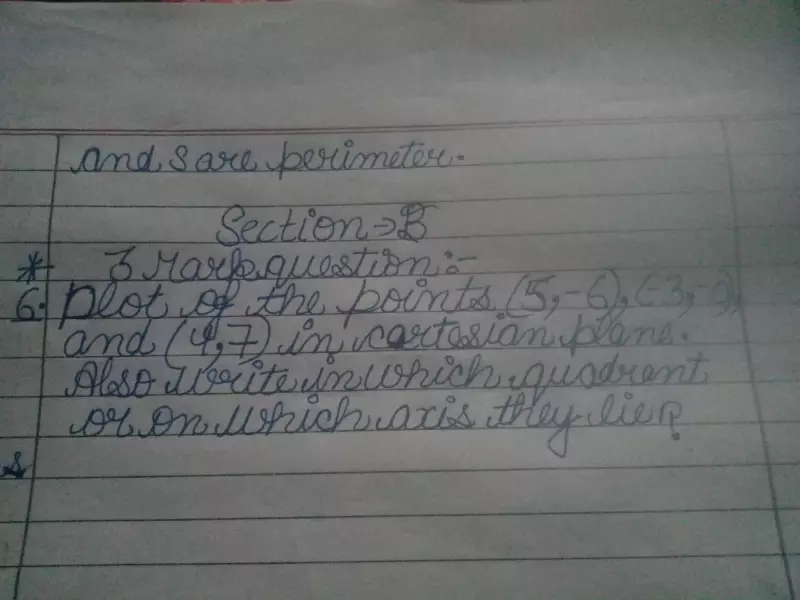 and s are perimeter.
Section → B
* 3 Mark question :-
6. Plot of the points (5,-6), (-3,-9)
and (4,7) in cartesian plane.
Also write in which quadrant
or on which axis they lie?